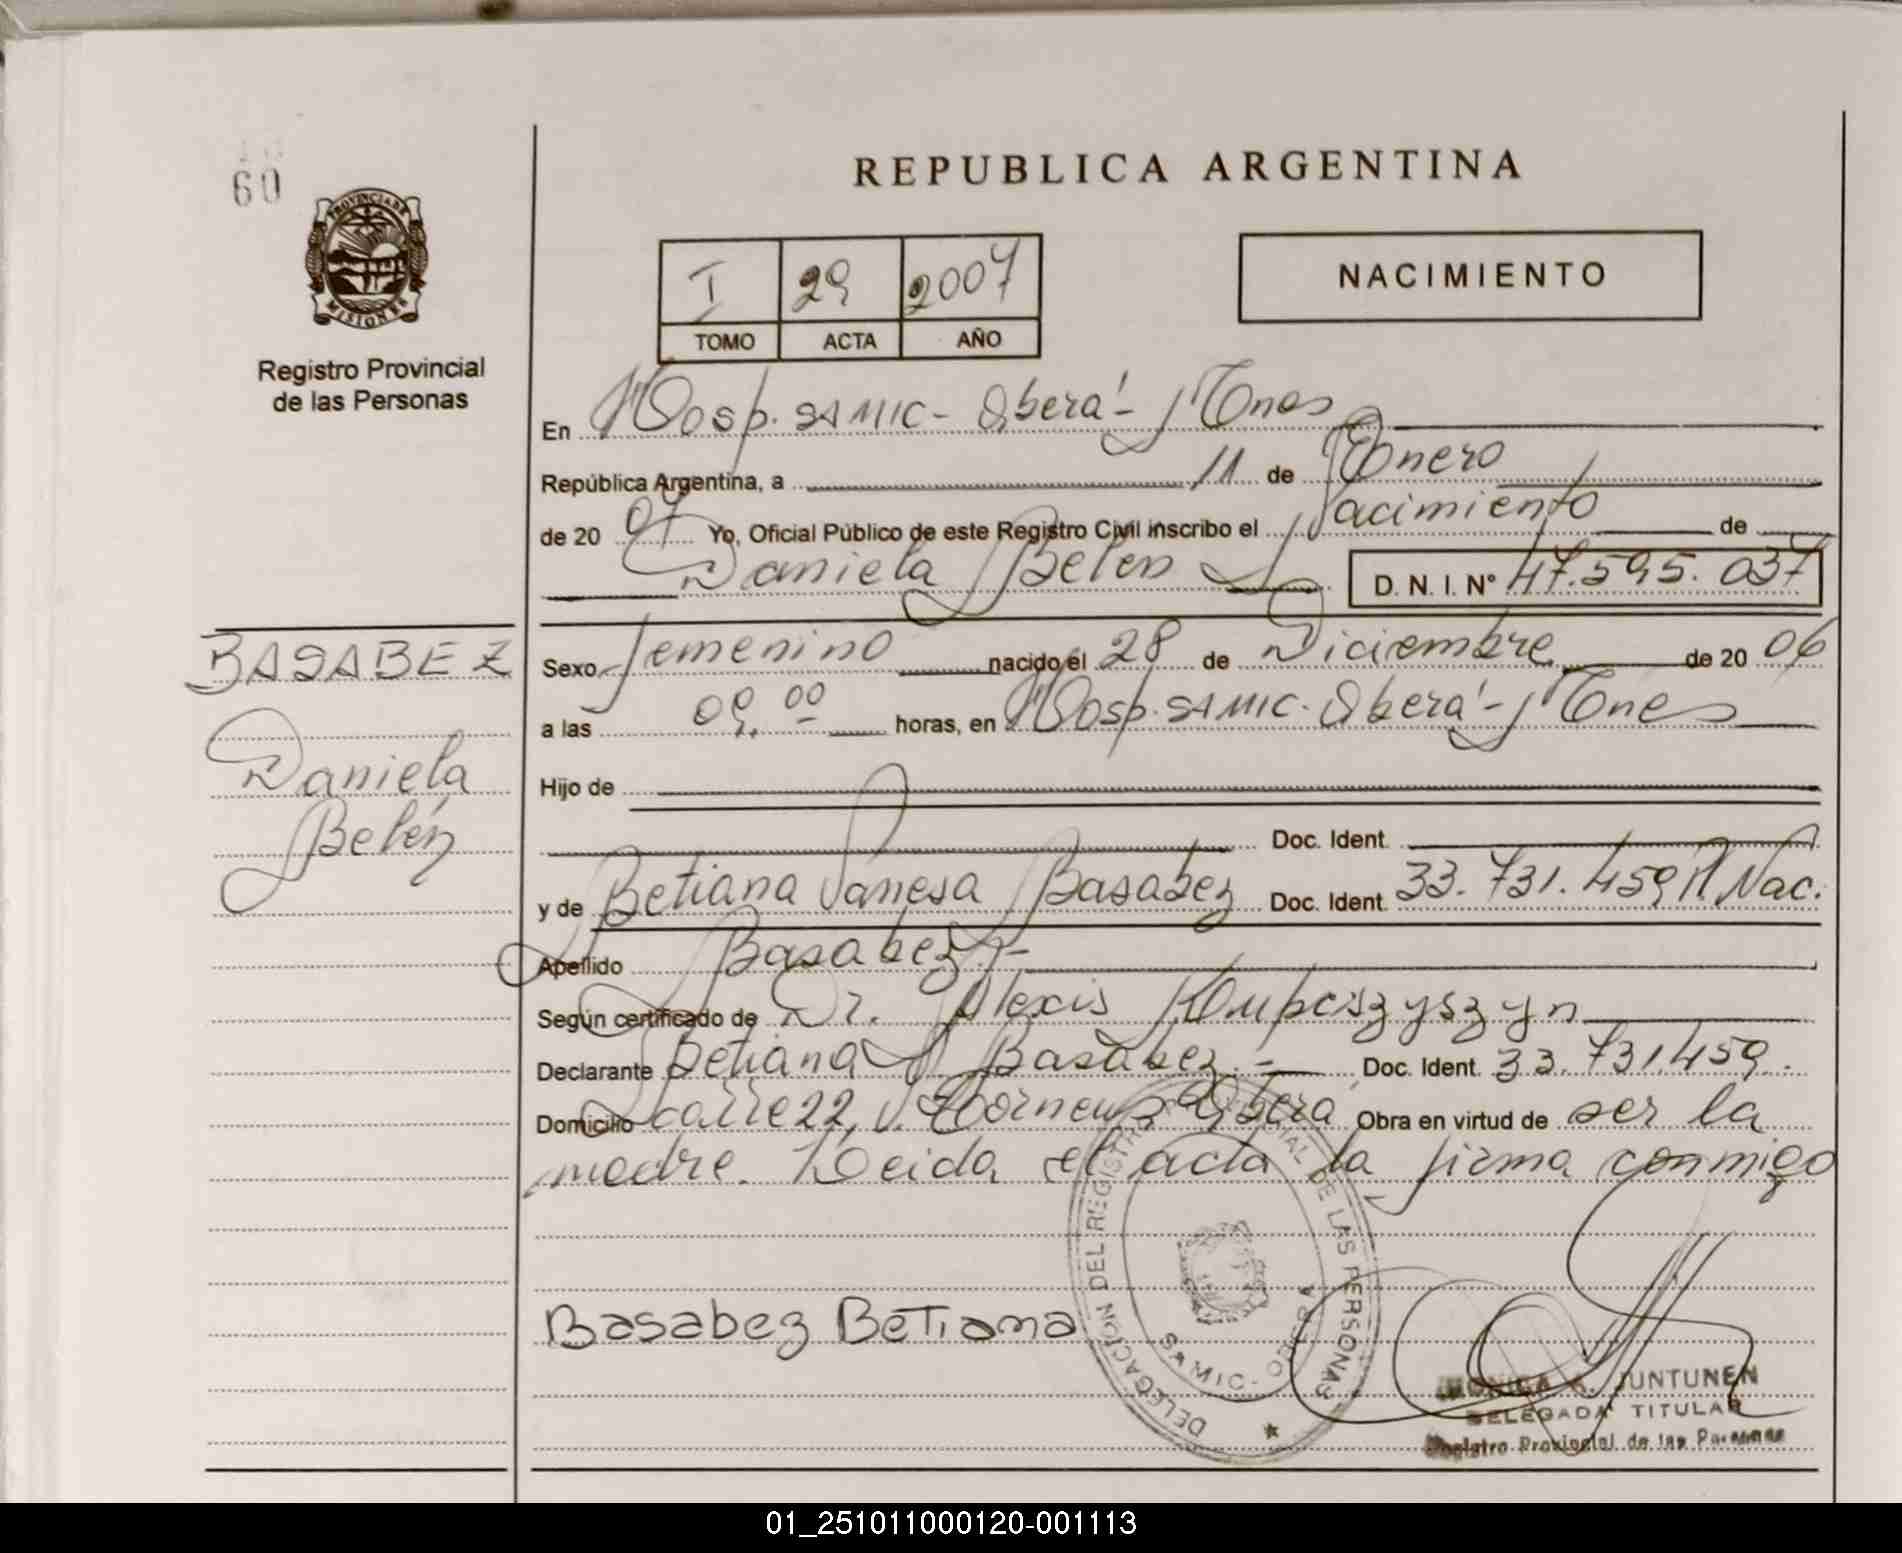 60
REPUBLICA ARGENTINA
PROVINCIA DE
MISIONES
I 29 2007
TOMO ACTA AÑO
NACIMIENTO
Registro Provincial
de las Personas
En Hosp. SAMIC - Oberá - Mnes
República Argentina, a 11 de Enero
de 20 07 Yo, Oficial Público de este Registro Civil inscribo el Nacimiento de
Daniela Belen D. N. I. N° 47.595.037
BASABEZ
Daniela
Belén
Sexo femenino nacido el 28 de Diciembre de 20 06
a las 09.00 horas, en Hosp. SAMIC. Oberá - Mnes
Hijo de
Doc. Ident.
y de Betiana Vanesa Basabez Doc. Ident. 33.731.459 Nac.
Apellido Basabez.-
Según certificado de Dr. Alexis Kupciszyszyn
Declarante Betiana V Basabez.- Doc. Ident. 33.731.459.
Domicilio calle 22, V. Oberá Obra en virtud de ser la
madre. Leida el acta la firma conmigo
Basabez BeTiana
DELEGACION DEL REGISTRO PROVINCIAL DE LAS PERSONAS
SAMIC - OBERA
MONICA JUNTUNEN
DELEGADA TITULAR
Registro Provincial de las Personas
01_251011000120-001113